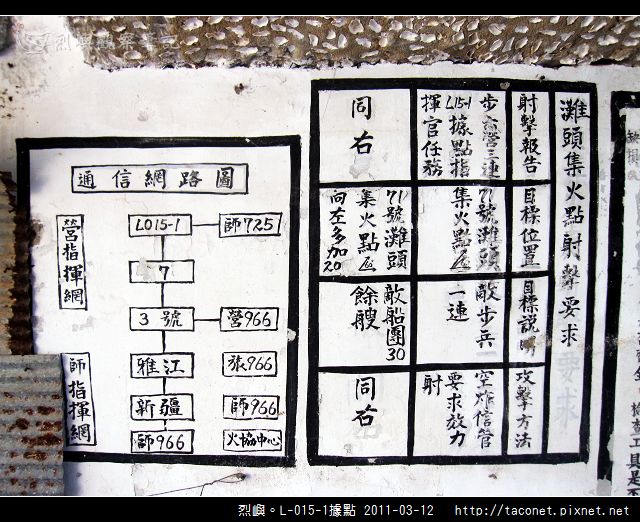 通信網路圖
營指揮網
師指揮網
L015-1
師725
7
3號
營966
雅江
旅966
新疆
師966
師966
火協中心
灘頭集火點射擊要求
射擊報告
目標位置
目標說明
攻擊方法
步 營三連
L15-1據點指
揮官任務
71號灘頭
集火點
敵步兵
一連
空炸信管
要求放力
射
同右
71號灘頭
集火點
向左多加20
敵船團30
餘艘
同右
烈嶼。L-015-1據點 2011-03-12
http://taconet.pixnet.net